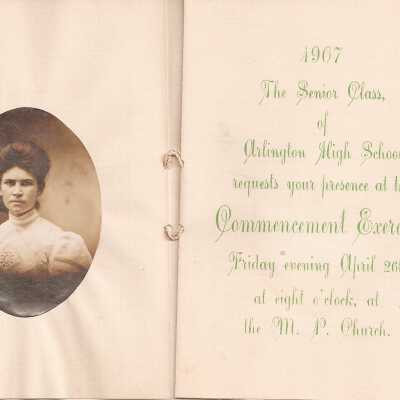 1907
The Senior Class,
of
Arlington High School
requests your presence at
Commencement
Friday evening April
at eight o'clock, at
the M. P. Church.